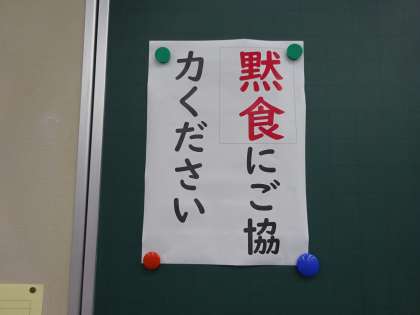 黙食にご協
力ください